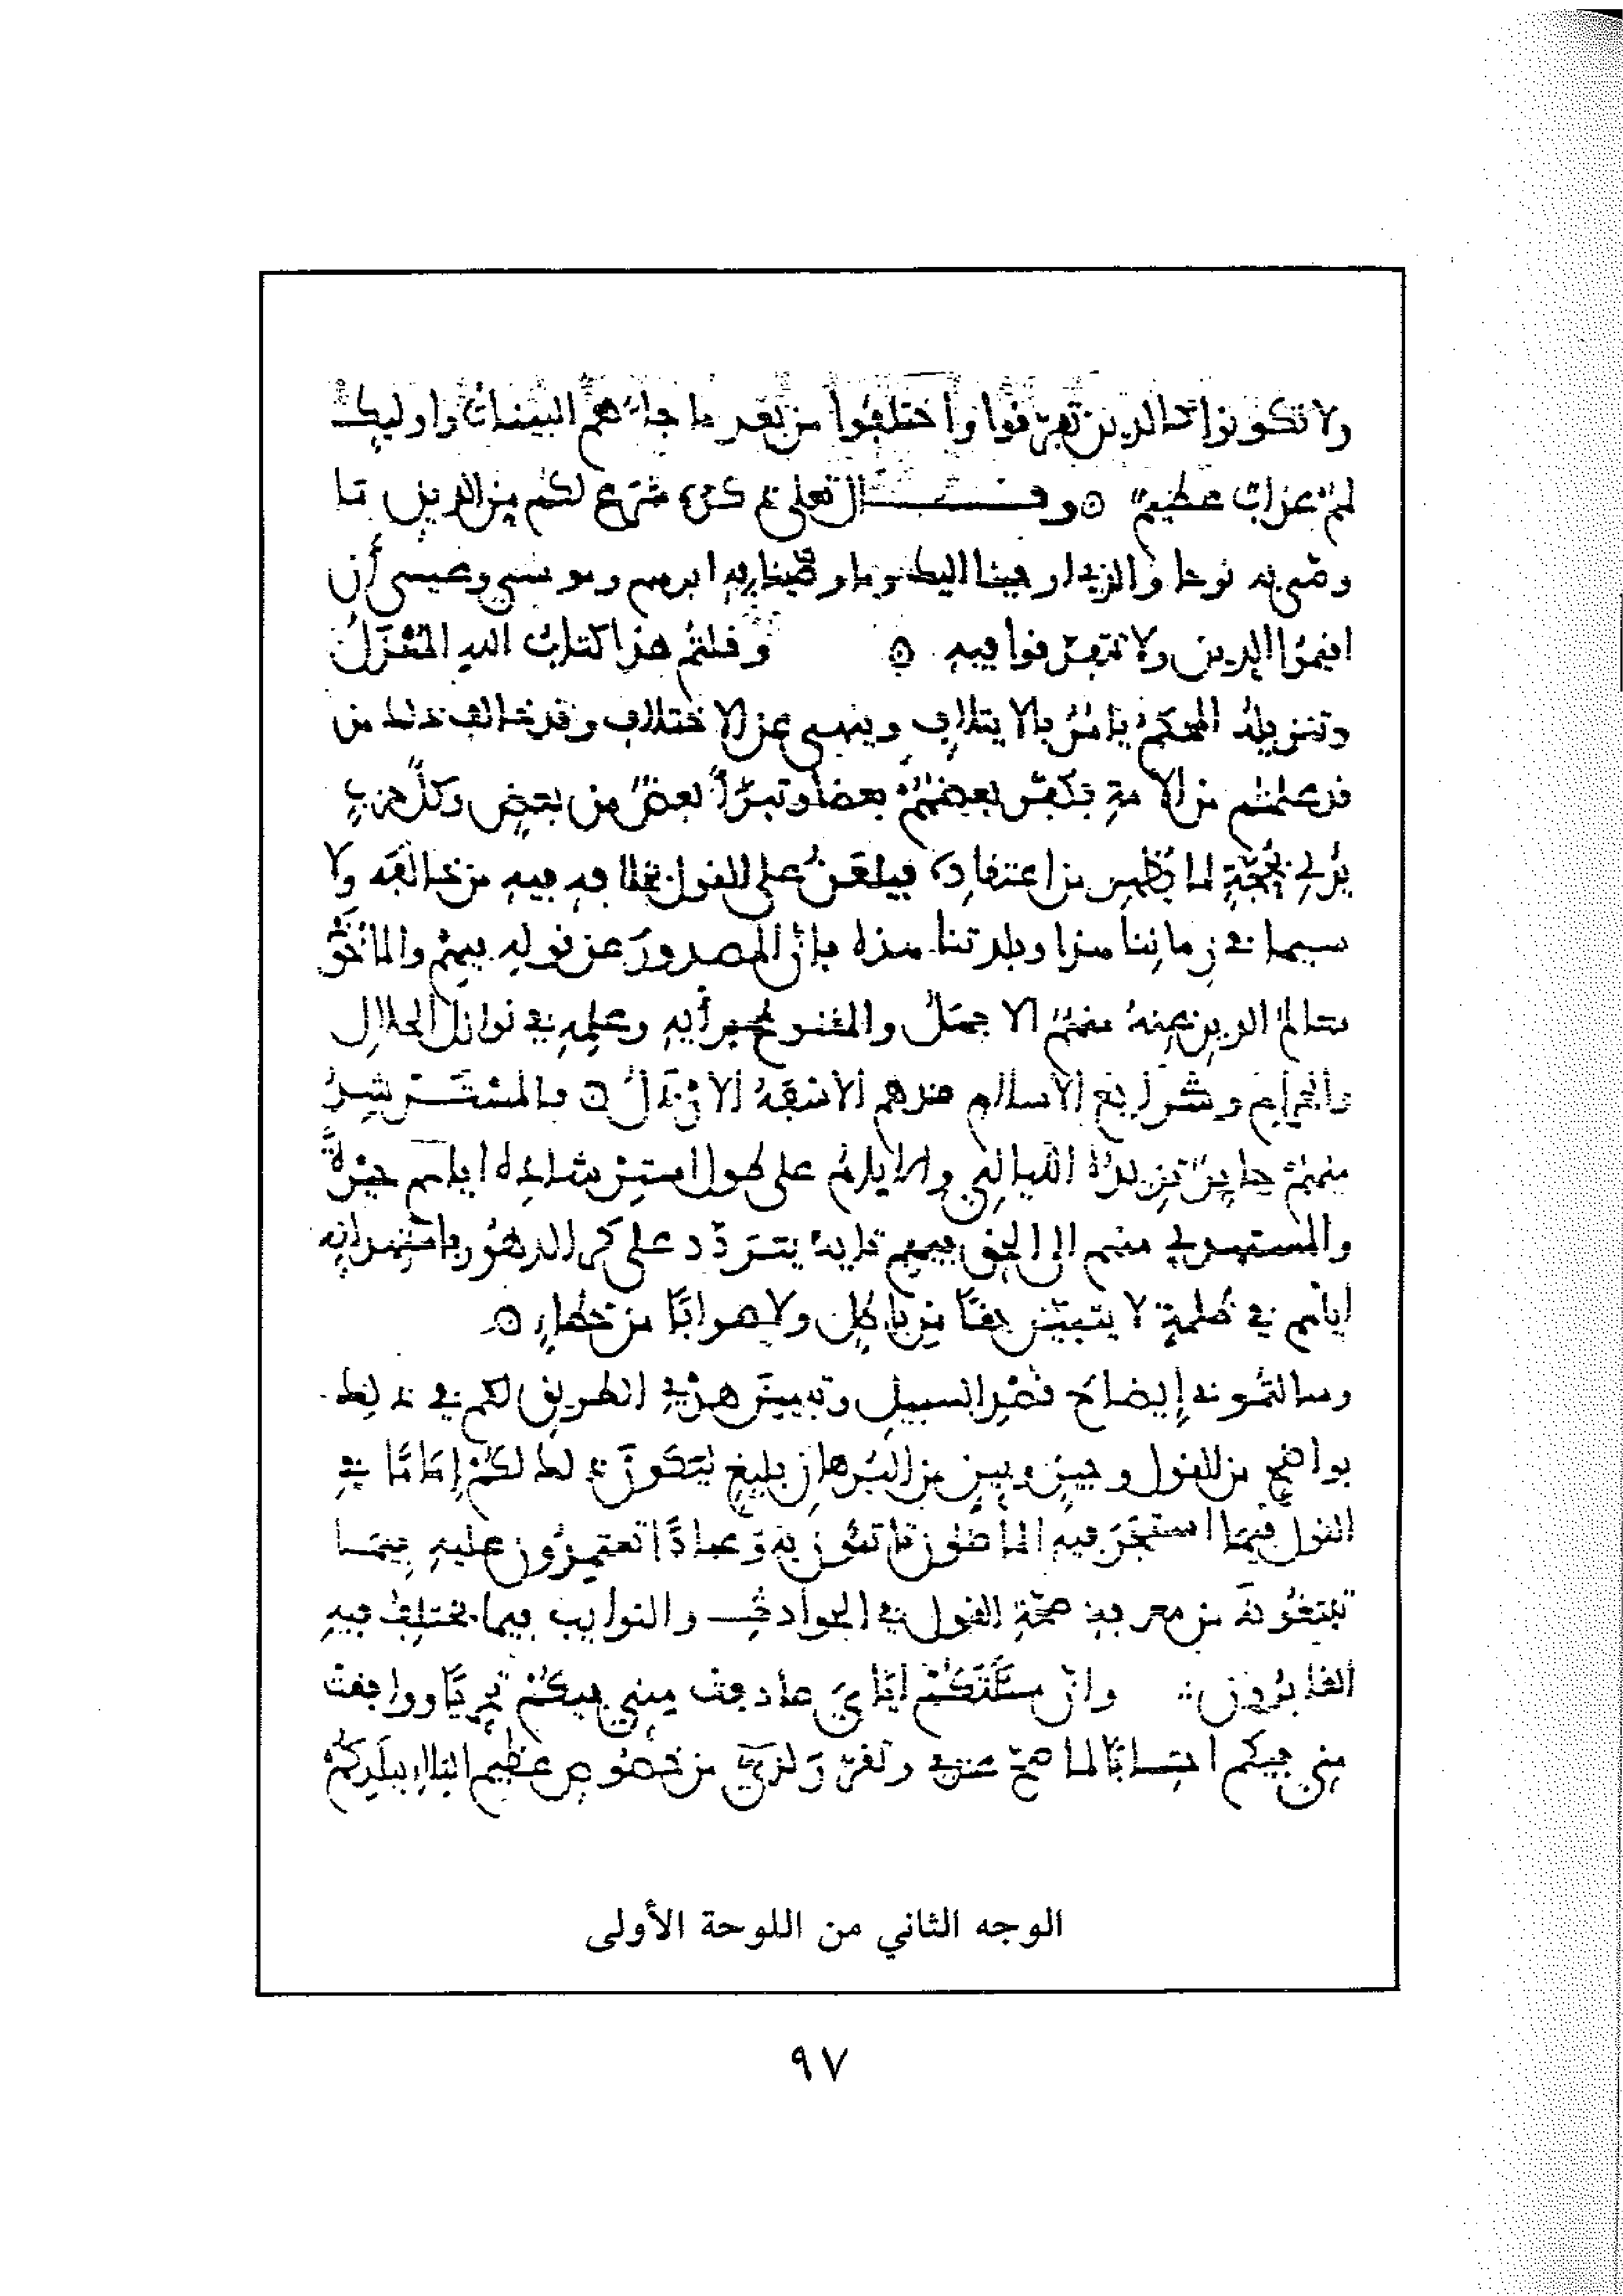 ولا تكونوا كالذين تفرقوا واختلفوا من بعد ما جاءهم البينات واوليك
لهم عذاب عظيم ۞ وقال تعلى ذكره شرع لكم من الدين ما
وصى به نوحا والذي اوحينا اليك وما وصينا به ابرهيم وموسى وعيسى أن
اقيموا الدين ولا تتفرقوا فيه ۞ وقلتم هذا كتاب الله المنزل
وتنزيله المحكم يامر بالايتلاف وينهى عن الاختلاف وقد خالف ذلك من
قد علمتم من الامة فكفر بعضهم بعضا وتبرأ بعض من بعض وكل حزب
يدلي بحجة لما يظهر من اعتقاده فيلعن على القول بخلافه فيه من خالفه ولا
سيما في زماننا هذا وبلدتنا هذه فإن المصدور عن قوله فيهم والمأخوذ
معالم الدين عنه منهم الاجهل والمقنوع برأيه وعلمه في نوازل الحلال
والحرام وشرايع الاسلام عندهم الاسفه الارذل ۞ فالمسترشد
منهم حاير تزيده الليالي والايام على طول استرشاده اياهم حيرة
والمستهدي منهم الى الحق فيهم تايه يتردد على كر الدهور باستهدايه
اياهم في ظلمة لا يتبين حقا من باطل ولا صوابا من خطإ ۞
وسالتموني إيضاح قصد السبيل وتبيين هدي الطريق لكم في ذلك
بواضح من القول وجيز وبين من البرهان بليغ ليكون ذلك لكم إماما في
القول فيما اشتجر فيه الماضون تاتمون به وعمادا تعتمدون عليه فيما
تبتغونه من معرفة صحة القول في الحوادث والنوايب فيما يختلف فيه
الغابرون وان مسئلتكم اياي صادفت مني فيكم تحريا ووافقت
مني فيكم احتسابا لما صح عندي وتقرر لدي من خصوص عظيم البلاء ببلدكم
الوجه الثاني من اللوحة الأولى
٩٧